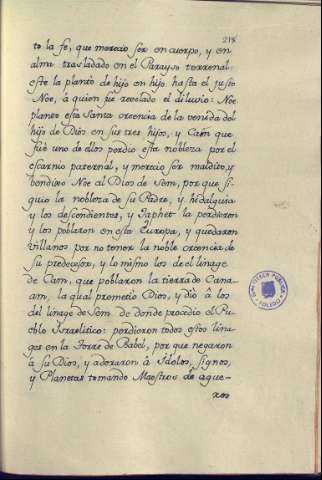 218
to la fe, que merecio ser en cuerpo, y en
alma trasladado en el Parayso terrenal:
este la planto de hijo en hijo hasta el justo
Noe, à quien fue revelado el diluvio: Noe
planto esta Santa creencia de la venida del
hijo de Dios en sus tres hijos, y Cam que
fuè uno de ellos perdio esta nobleza por el
escarnio paternal, y merecio ser maldito, y
bendixo Noe al Dios de Sem, porque si-
guio la nobleza de su Padre, y hidalguia
y los descendientes, y Japhet la perdieron
y los poblaron en esta Europa, y quedaron
villanos por no tener la noble creencia de
su predecesor, y lo mismo los de el linage
de Cam, que poblaron la tierra de Cana-
am, la qual prometio Dios, y diò à los
del linage de Sem. de donde procedio el Pu-
eblo Israelitico: perdieron todos estos lina-
ges en la Torre de Babel, porque negaron
à su Dios, y adoraron à Idolos, signos,
y Planetas tomando Maestros de ague-
ros
TOLEDO